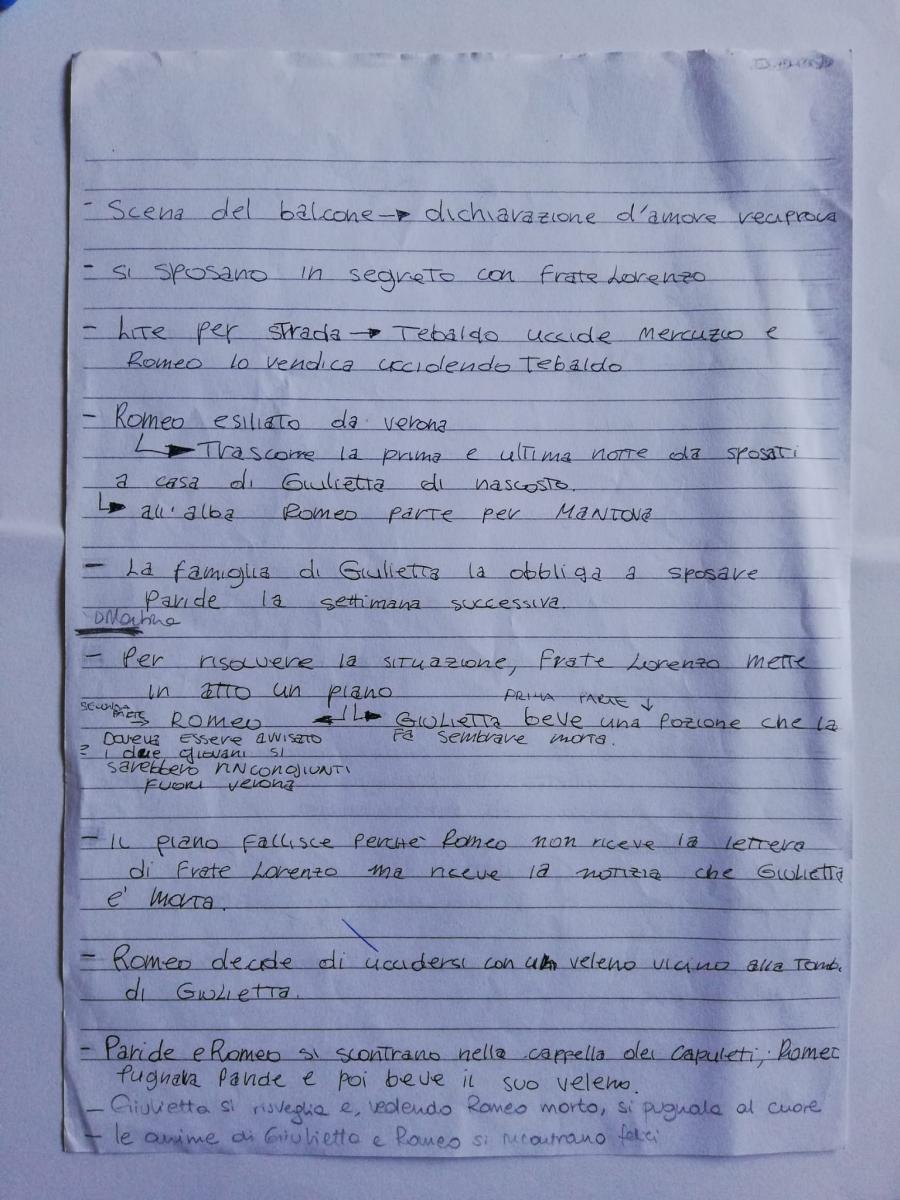 - Scena del balcone → dichiarazione d'amore reciproca
- si sposano in segreto con frate Lorenzo
- Lite per strada → Tebaldo uccide Mercuzio e
Romeo lo vendica uccidendo Tebaldo
- Romeo esiliato da verona
↳ Trascorre la prima e ultima notte da sposati
a casa di Giulietta di nascosto.
↳ all'alba Romeo parte per MANTOVA
- La famiglia di Giulietta la obbliga a sposare
Paride la settimana successiva.
- Per risolvere la situazione, frate Lorenzo mette
in atto un piano
PRIMA PARTE ↓
SECONDA PARTE → ROMEO ↲↳ GIULIETTA beve una pozione che la
fa sembrare morta.
DOVEVA ESSERE AVVISATO
e i due giovani si
sarebbero RINCONGIUNTI
FUORI verona
- IL piano fallisce perchè Romeo non riceve la lettera
di Frate Lorenzo ma riceve la notizia che Giulietta
e' morta.
- Romeo decide di uccidersi con un veleno vicino alla Tomb.
di Giulietta.
- Paride e Romeo si scontrano nella cappella dei Capuleti, Romeo
Pugnala Paride e poi beve il suo veleno.
- Giulietta si risveglia e, vedendo Romeo morto, si pugnala al cuore
- le anime di Giulietta e Romeo si incontrano felici